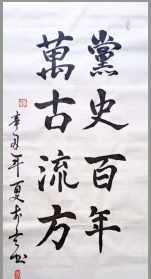 黨史百年
萬古流方
辛丑年夏